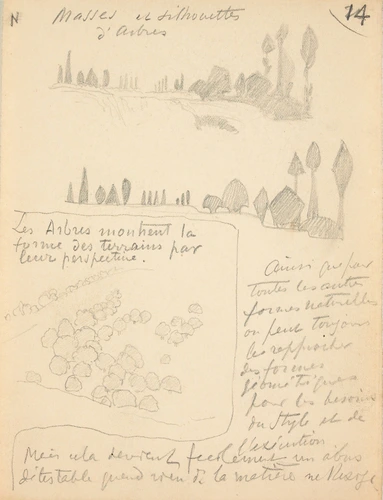 N
Masses et silhouettes
d'arbres
14
Les Arbres montrent la
forme des terrains par
leur perspective.
Ainsi que pour
toutes les autres
formes naturelles
on peut toujours
les rapprocher
des formes
géométriques
pour les besoins
du style et de
l'exécution
Mais cela devient facilement un abus
détestable quand rien de la matière ne